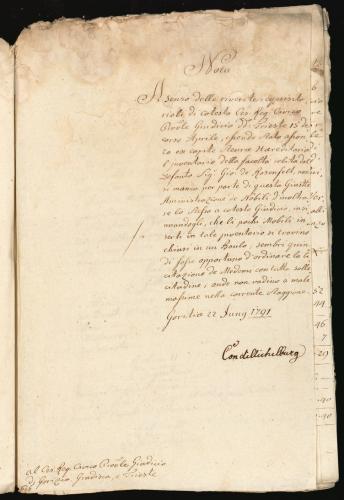 Nota
A senso delle riverite requisito
riali di cotesto Ces. Reg. Civico
Provle Giudicio di Trieste 15 de
corso Aprile, essendo stato assun
to ex capite Sterne Hareditario
l'inventario della facoltà relitta dal
Defunto Sigr Gio: de Rosenfelt,
si manca per parte di questa Giustle
Amministrazione de Nobili d'inoltrar
se lo stesso a cotesto Giudicio, rac
mandogli, che li pochi Mobili in
seriti in tale inventario si trovino
chiusi in un Baulo, sembri quin
di fosse opportuno d'ordinare la li
citazione de Medemi con tutta solle
citudine, onde non vadino a male
massime nella corrente Staggione.
Goritia 22 Jung 1791
Con dellichelburg
al Ces. Reg. Civico Provle Giudicio
di Trieste